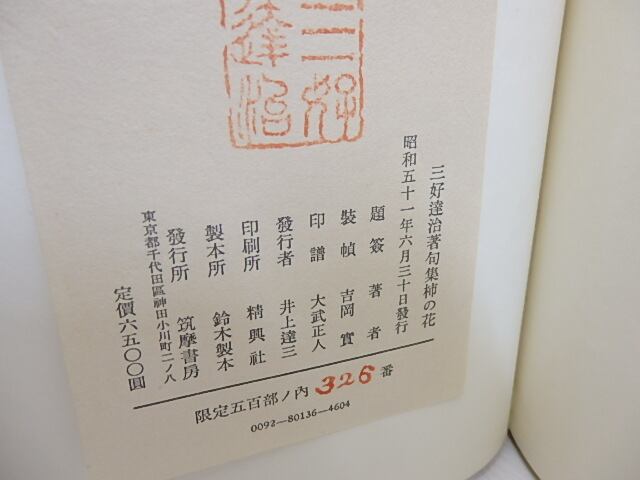 三好達治
三好達治著句集柿の花
昭和五十一年六月三十日發行
題簽 著者
裝幀 吉岡實
印譜 大武正人
發行者 井上達三
印刷所 精興社
製本所 鈴木製本
發行所 筑摩書房
東京都千代田區神田小川町二ノ八
定價六五〇〇圓
限定五百部ノ內 326 番
0092—80136—4604